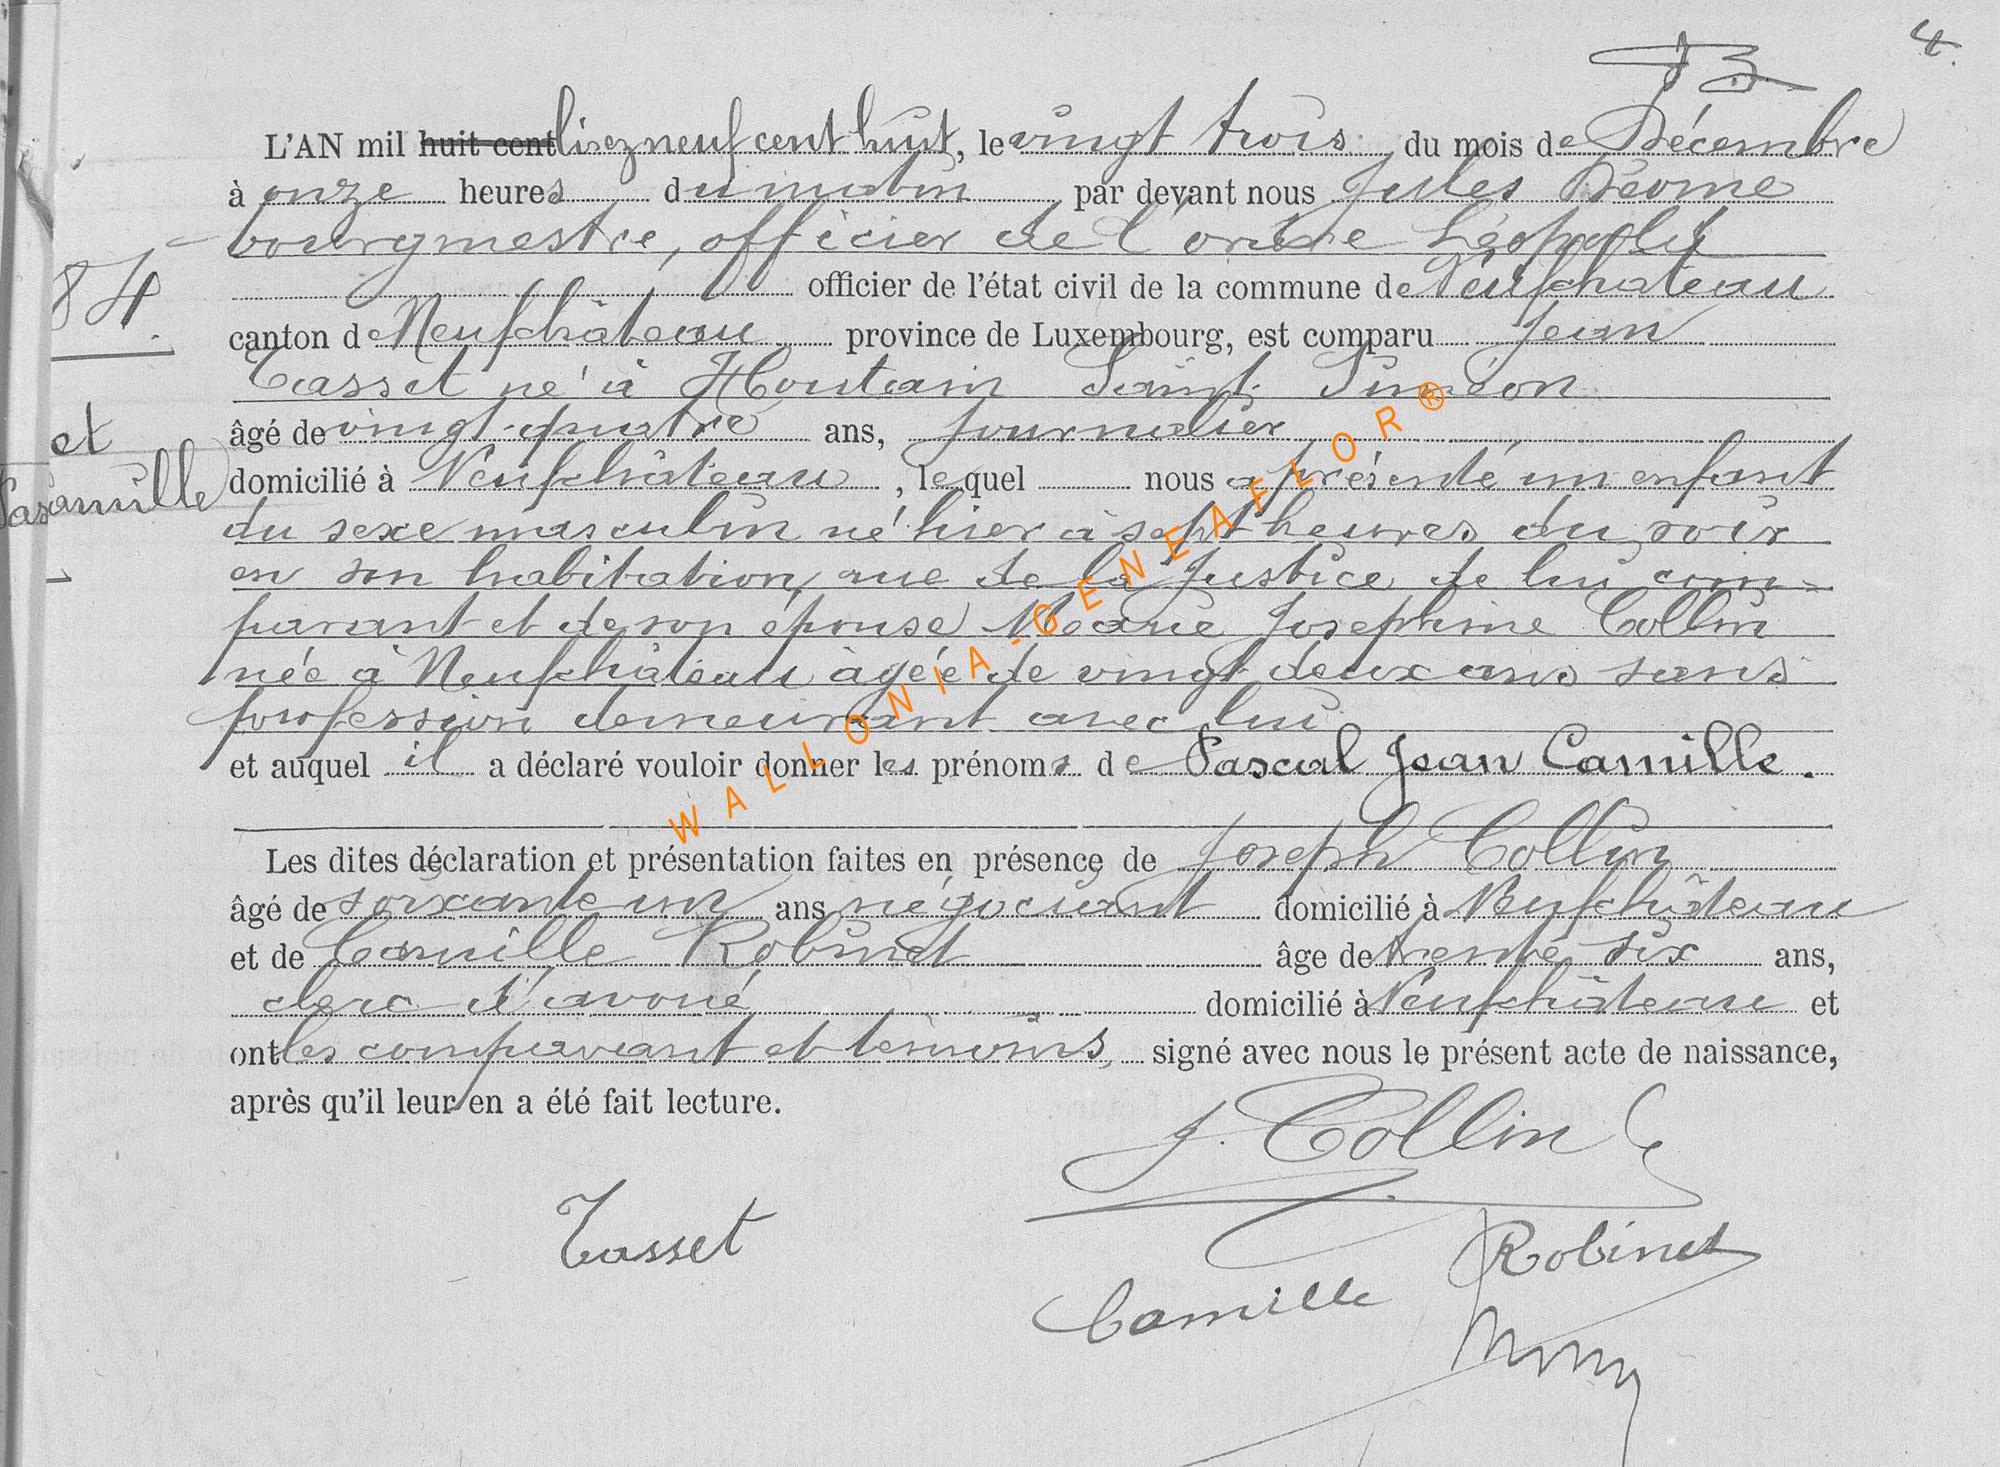 4.
L'AN mil huit cent lisez neuf cent huit, le vingt trois du mois de Décembre
à onze heures du matin par devant nous Jules Déome
bourgmestre, officier de l'ordre Léopold
officier de l'état civil de la commune de Neufchâteau
84.
canton de Neufchâteau province de Luxembourg, est comparu Jean
Tasset né à Houtain Saint Siméon
et
âgé de vingt-quatre ans, journalier
Camille
domicilié à Neufchâteau, lequel nous a présenté un enfant
du sexe masculin né hier à sept heures du soir
en son habitation, rue de la Justice de lui com-
parant et de son épouse Marie Joséphine Collin
née à Neufchâteau âgée de vingt deux ans sans
profession demeurant avec lui
et auquel il a déclaré vouloir donner les prénoms de Pascal Jean Camille.
WALLONIA-GENEAFLOR®
Les dites déclaration et présentation faites en présence de Joseph Collin
âgé de soixante un ans négociant domicilié à Neufchâteau
et de Camille Robinet âge de trente six ans,
clerc d'avoué domicilié à Neufchâteau et
ont les comparant et témoins, signé avec nous le présent acte de naissance,
après qu'il leur en a été fait lecture.
J. Collin
Tasset
Camille Robinet